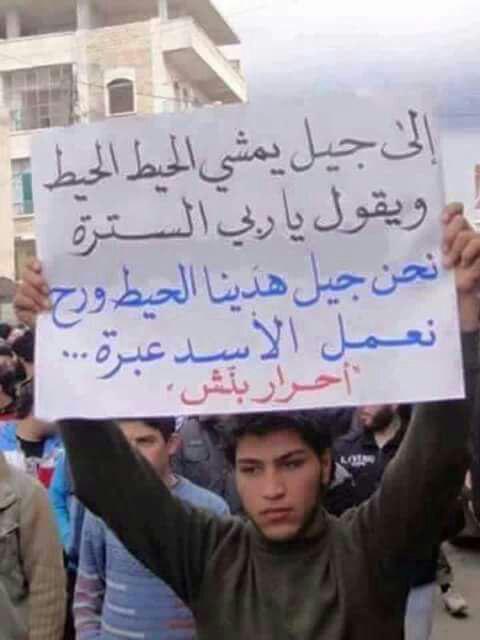 إلى جيل يمشي الحيط الحيط
ويقول يا ربي الستـرة
نحن جيل هدَينا الحيط ورح
نعـمـل الأسـد عبرة...
"أحرار بنّش"
LIVING